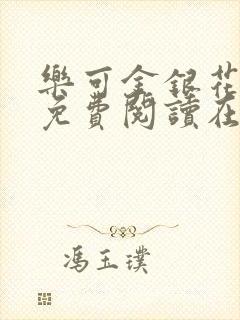 樂可金銀花
免費閱讀在
馮玉璞